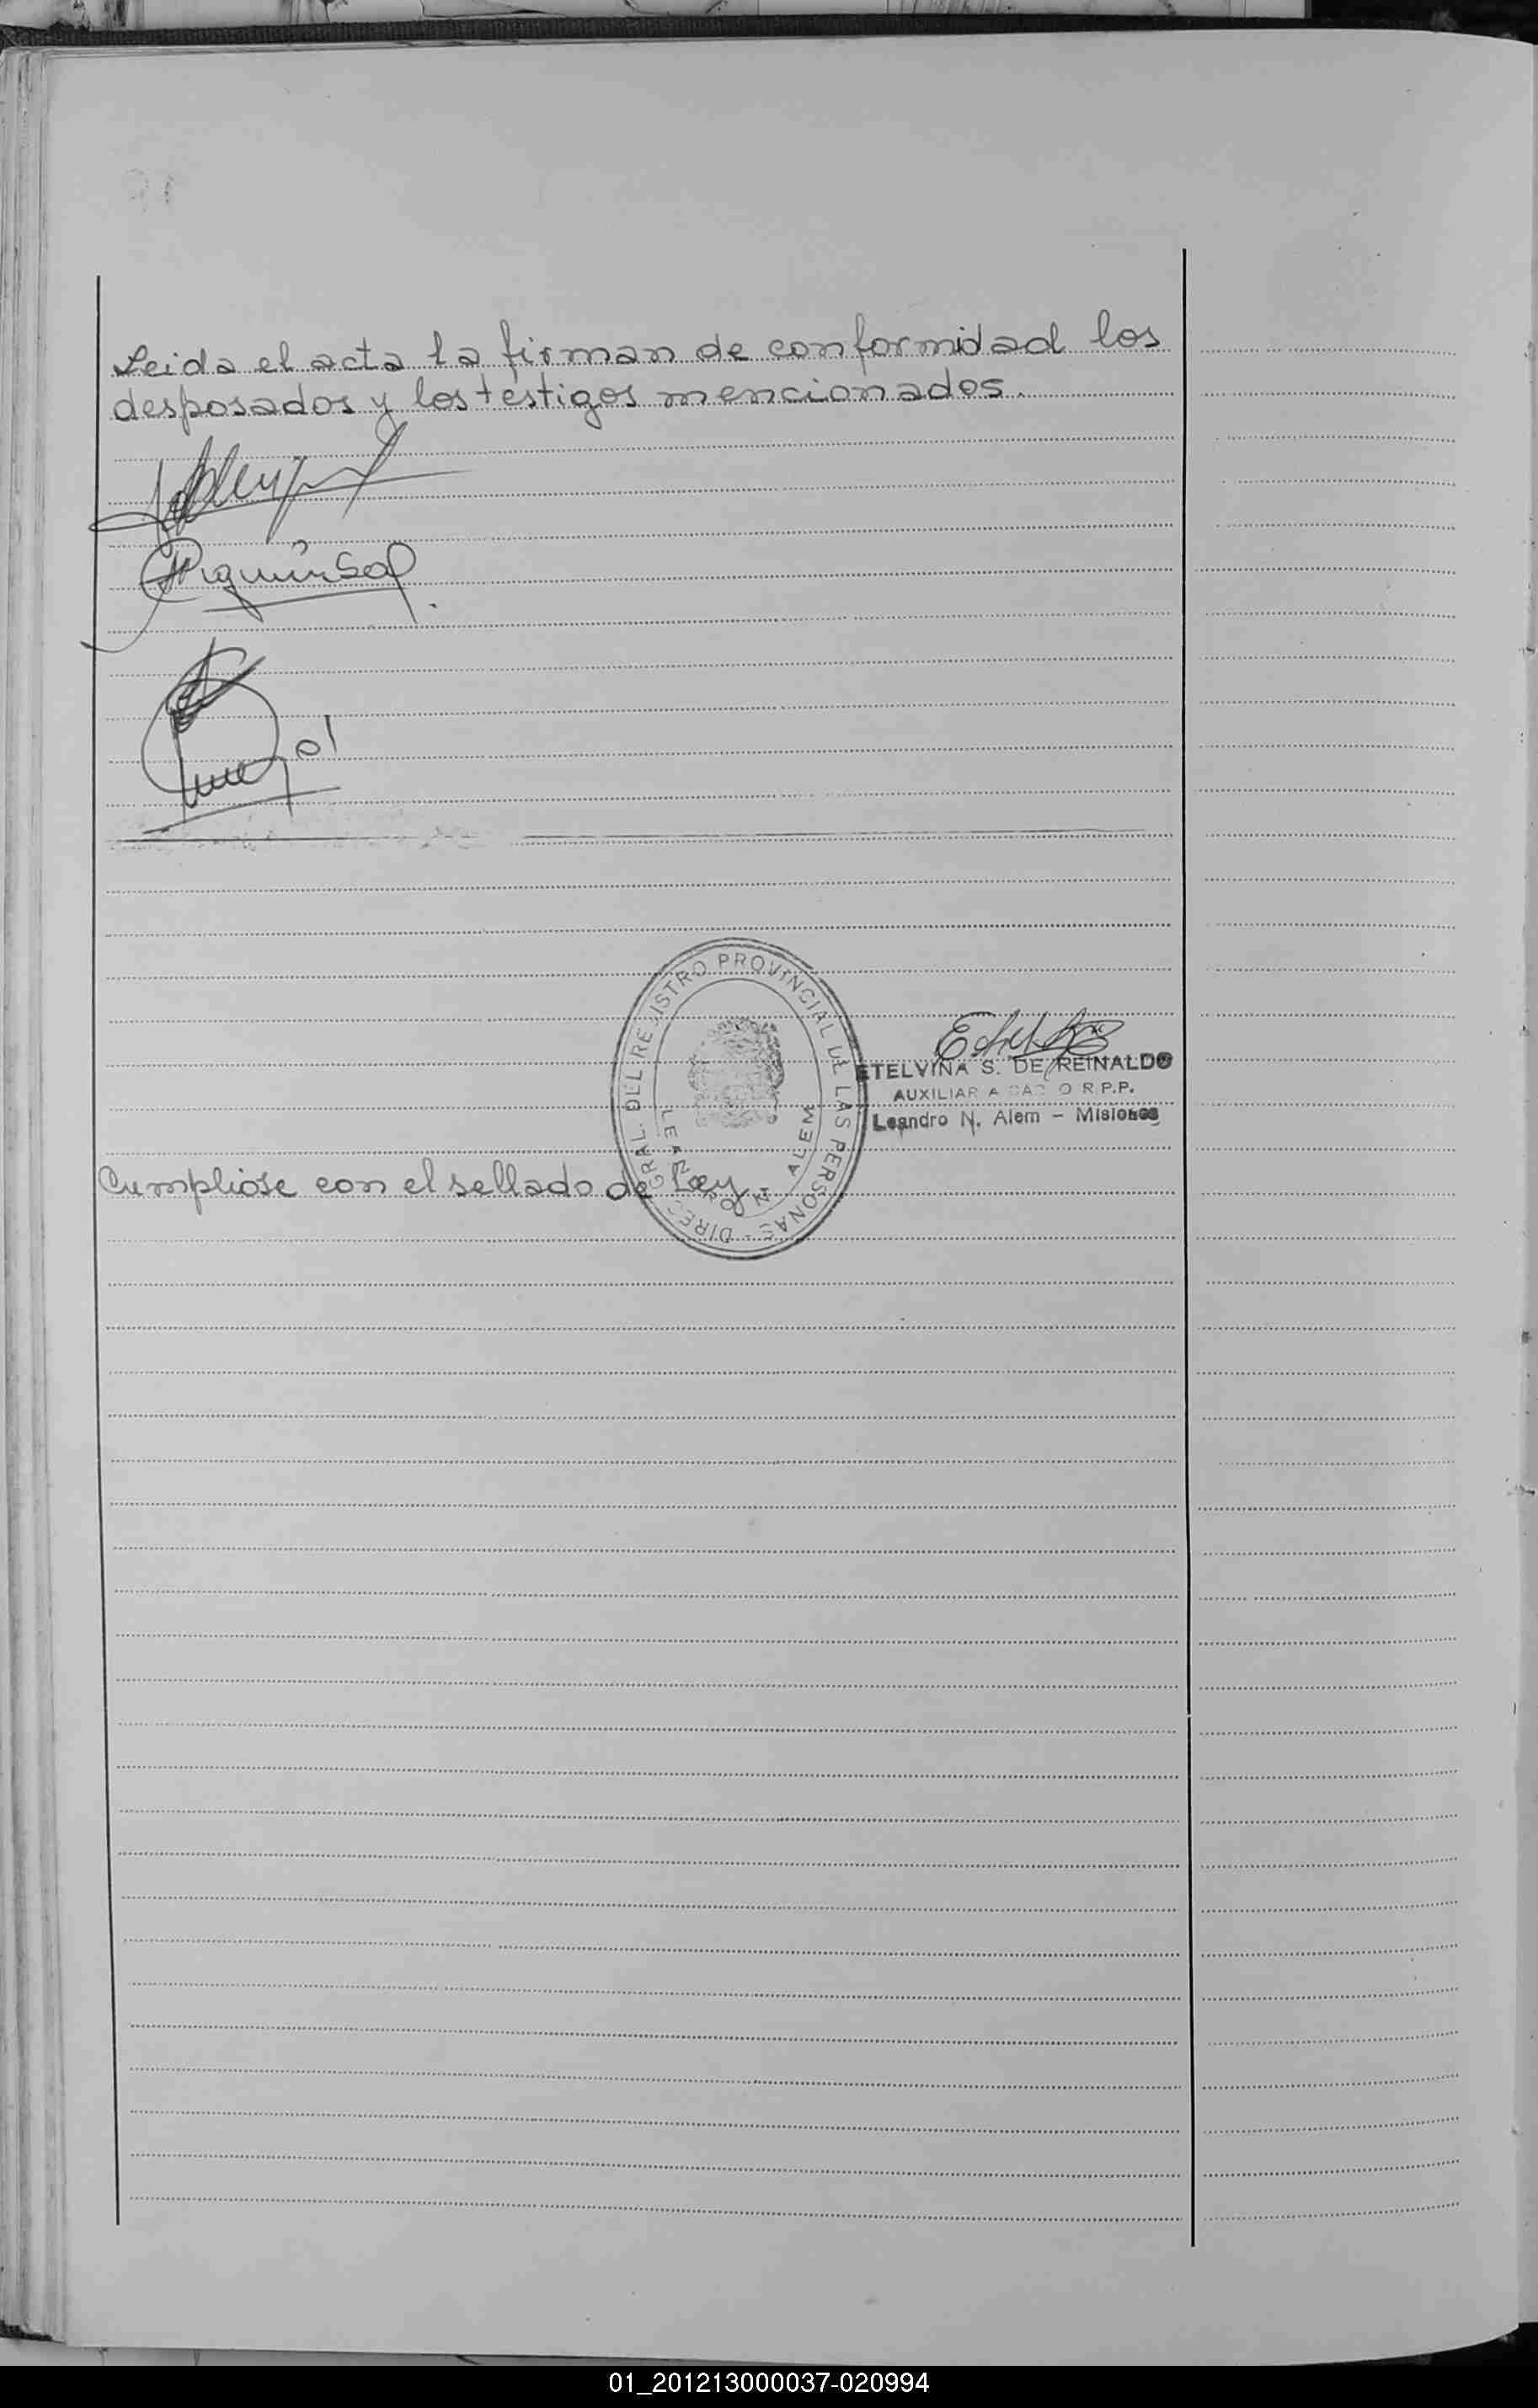 Leida el acta la firman de conformidad los
desposados y los testigos mencionados.
DIREC. GRAL. DEL REGISTRO PROVINCIAL DE LAS PERSONAS -
LEANDRO N. ALEM
ETELVINA S. DE REINALDO
AUXILIAR A CARGO R.P.P.
Leandro N. Alem - Misiones
Cumpliose con el sellado de Ley
01_201213000037-020994